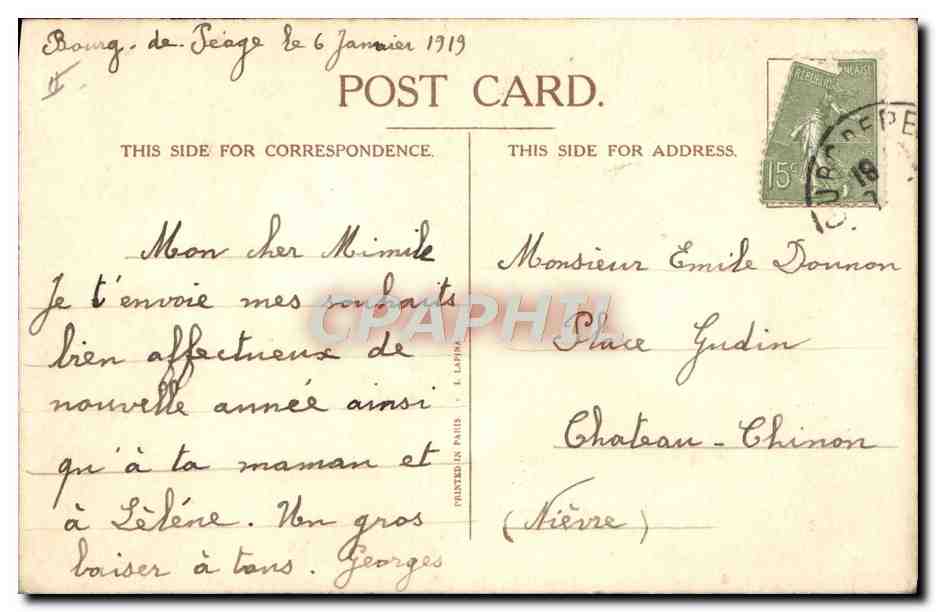 Bourg-de-Péage le 6 Janvier 1919
II
POST CARD.
THIS SIDE FOR CORRESPONDENCE.
THIS SIDE FOR ADDRESS.
RÉPUBLIQUE FRANÇAISE
15c
Mon cher Mimile
Je t'envoie mes souhaits
bien affectueux de
nouvelle année ainsi
qu'à ta maman et
à Lèléne. Un gros
baiser à tous. Georges
PRINTED IN PARIS. - I. LAPINA
Monsieur Emile Dounon
Place Gudin
Chateau-Chinon
(Nièvre)
CPAPHIL